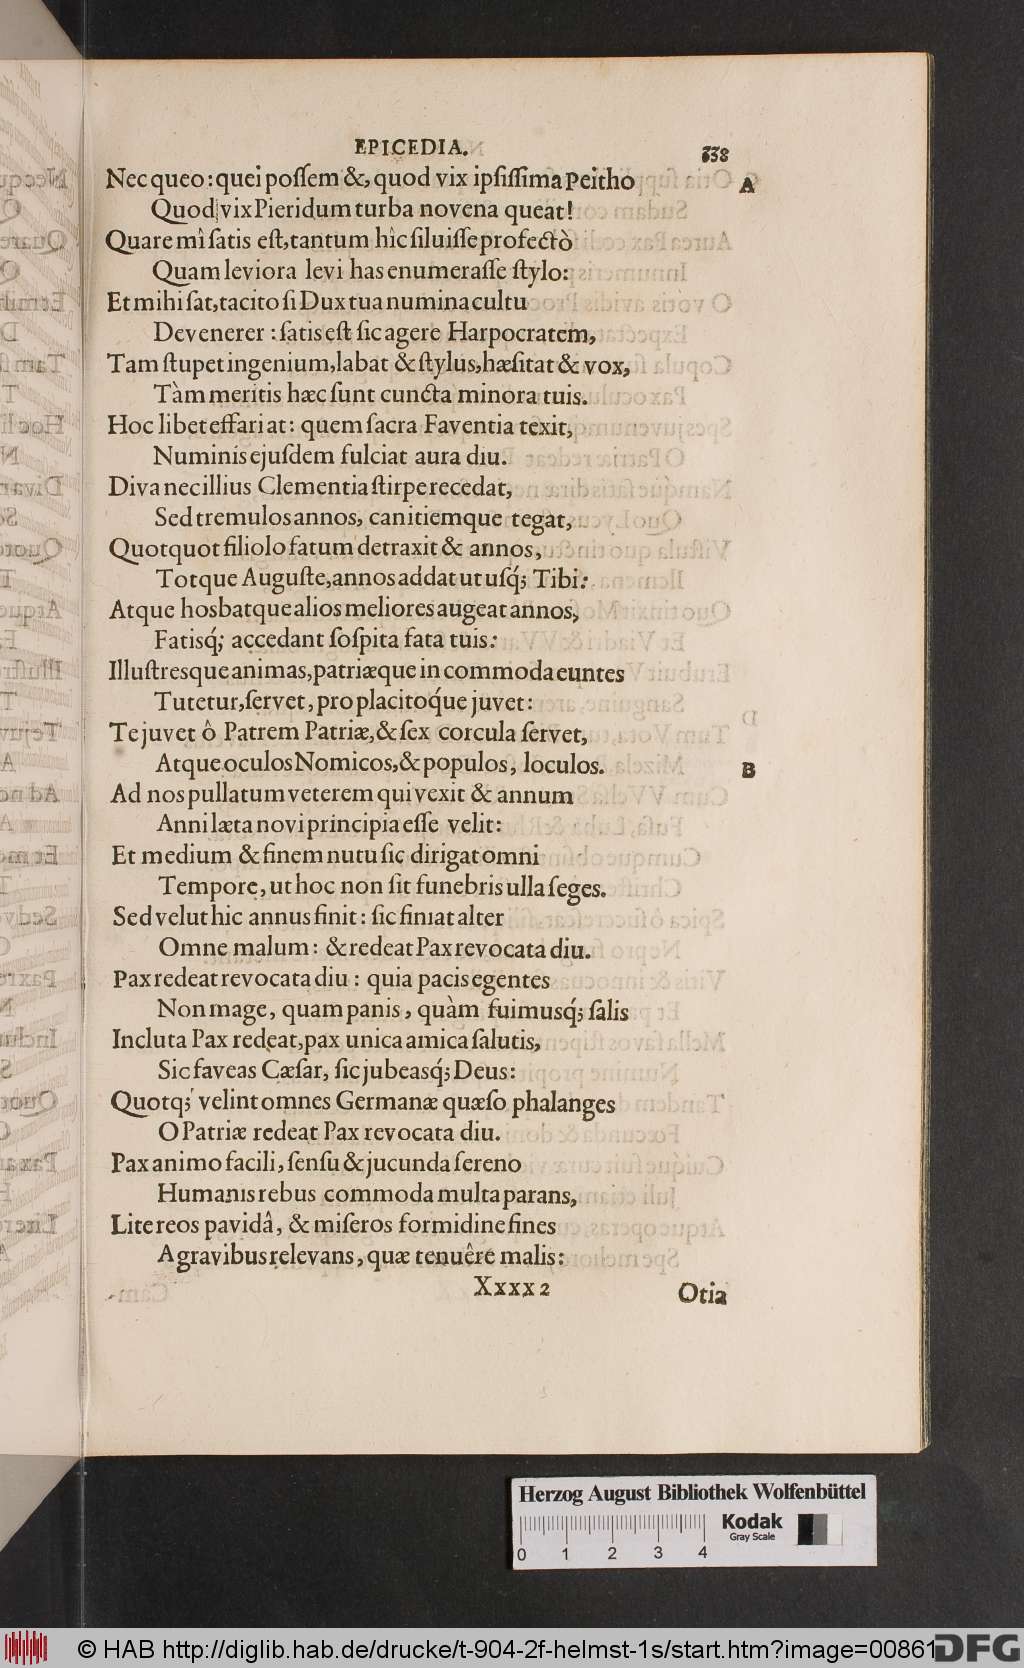 EPICEDIA. 638
Nec queo: quei poſſem &, quod vix ipſiſſima Peitho A
Quod vix Pieridum turba novena queat!
Quare mî ſatis eſt, tantum hîc ſiluiſſe profectò
Quam leviora levi has enumeraſſe ſtylo:
Et mihi ſat, tacito ſi Dux tua numina cultu
Devenerer: ſatis eſt ſic agere Harpocratem,
Tam ſtupet ingenium, labat & ſtylus, hæſitat & vox,
Tàm meritis hæc ſunt cuncta minora tuis.
Hoc libet effari at: quem ſacra Faventia texit,
Numinis ejuſdem fulciat aura diu.
Diva nec illius Clementia ſtirpe recedat,
Sed tremulos annos, canitiemque tegat,
Quotquot filiolo fatum detraxit & annos,
Totque Auguſte, annos addat ut uſq́; Tibi:
Atque hos batque alios meliores augeat annos,
Fatisq́; accedant ſoſpita fata tuis:
Illuſtresque animas, patriæque in commoda euntes
Tutetur, ſervet, pro placitoq́ue juvet:
Te juvet ô Patrem Patriæ, & ſex corcula ſervet,
Atque oculos Nomicos, & populos, loculos. B
Ad nos pullatum veterem qui vexit & annum
Anni læta novi principia eſſe velit:
Et medium & finem nutu ſic dirigat omni
Tempore, ut hoc non ſit funebris ulla ſeges.
Sed velut hic annus finit: ſic finiat alter
Omne malum: & redeat Pax revocata diu.
Pax redeat revocata diu: quia pacis egentes
Non mage, quam panis, quàm fuimusq́; ſalis
Incluta Pax redeat, pax unica amica ſalutis,
Sic faveas Cæſar, ſic jubeasq́; Deus:
Quotq́; velint omnes Germanæ quæſo phalanges
O Patriæ redeat Pax revocata diu.
Pax animo facili, ſenſu & jucunda ſereno
Humanis rebus commoda multa parans,
Lite reos pavidâ, & miſeros formidine fines
A gravibus relevans, quæ tenuêre malis:
Xxxx 2 Otia
Herzog August Bibliothek Wolfenbüttel
Kodak
Gray Scale
0 1 2 3 4
© HAB http://diglib.hab.de/drucke/t-904-2f-helmst-1s/start.htm?image=00861
DFG